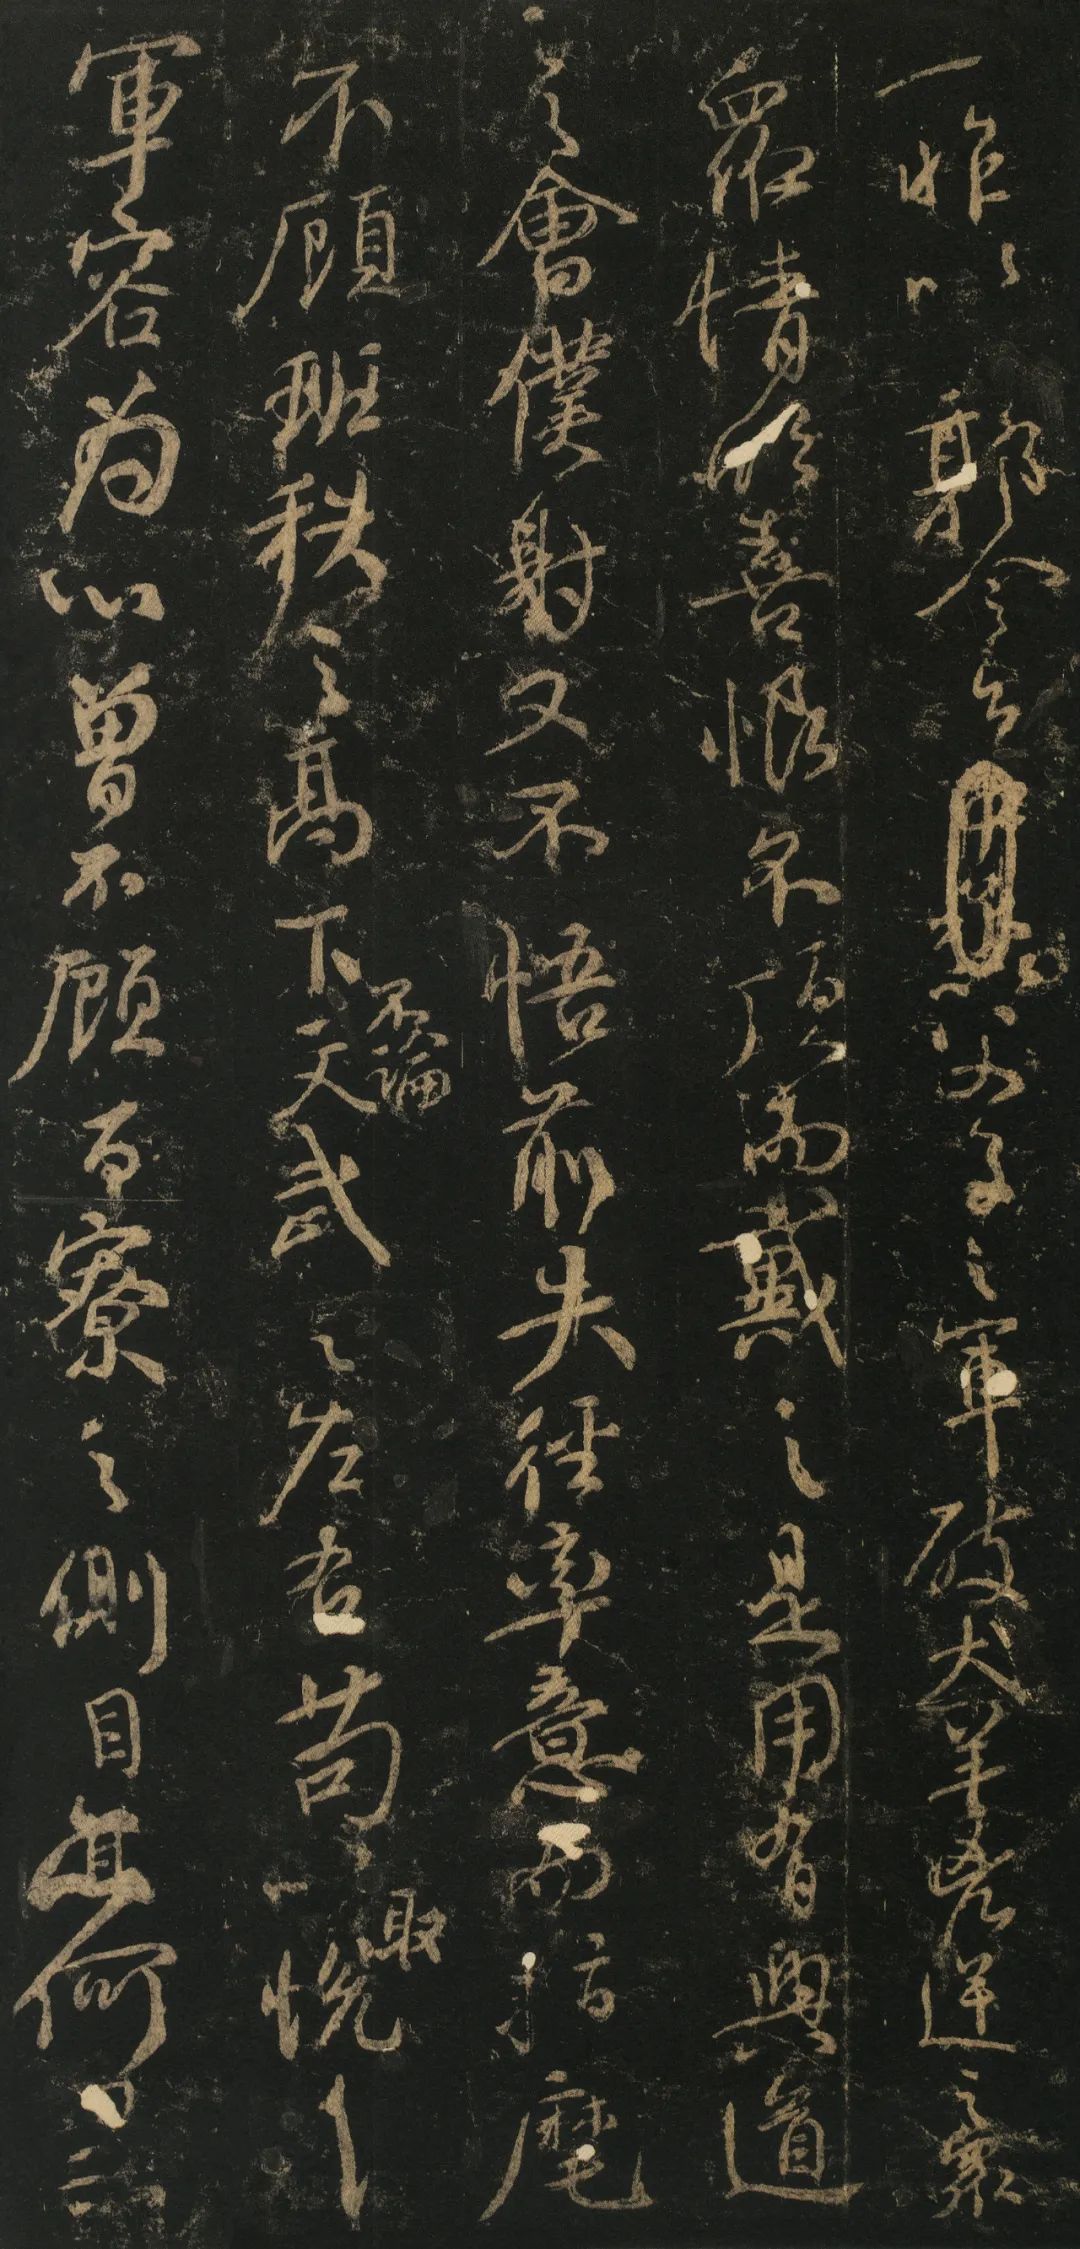 一昨以郭令公以父子之軍破犬羊兇逆之衆
衆情欣喜恨不頂而戴之是用有興道
之會僕射又不悟前失徑率意而指麾
不顧班秩之高下不論文武之左右苟以取悦
軍容為心曾不顧百寮之側目亦何